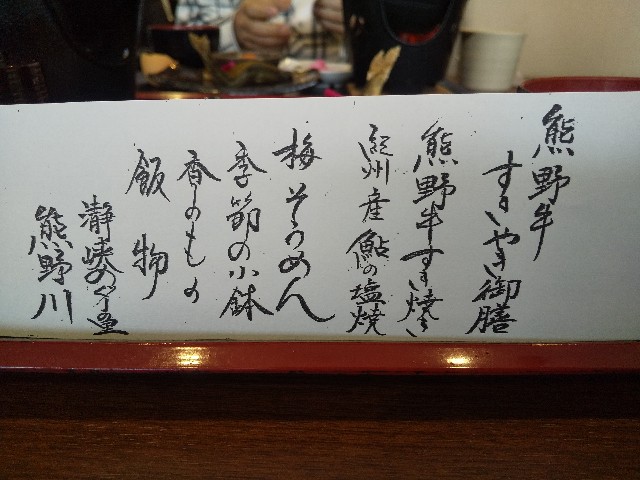 熊野牛
すきやき御膳
熊野牛すき焼き
紀州産鮎の塩焼
梅そうめん
季節の小鉢
香のもの
飯物
瀞峡めぐり
熊野川